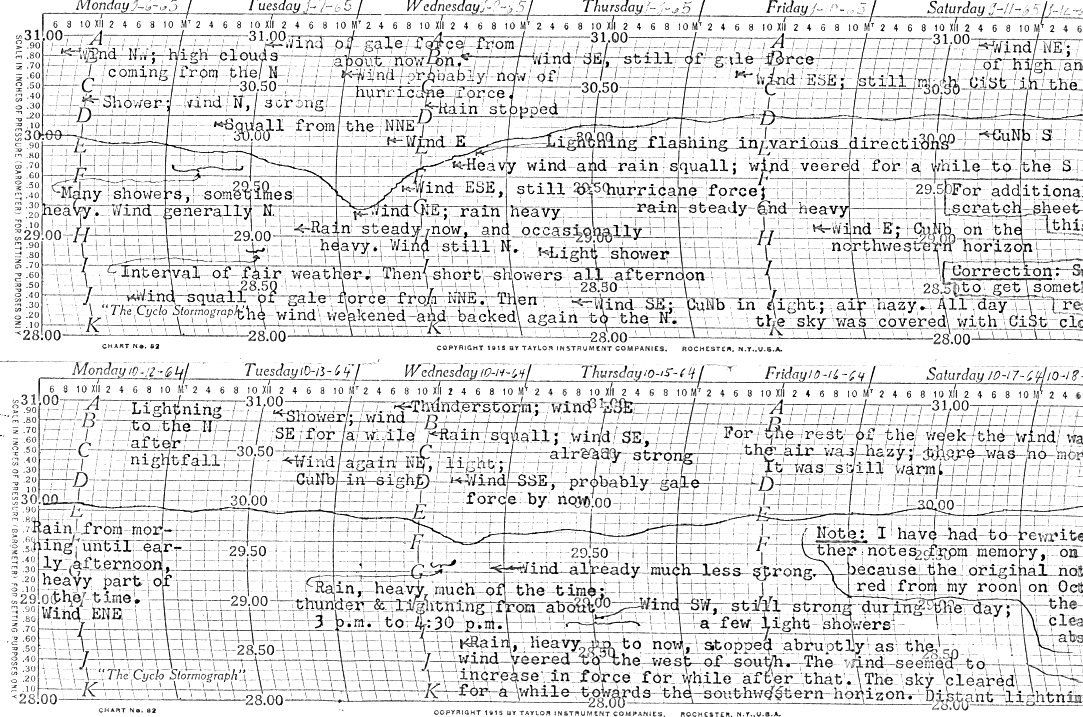 Monday Tuesday Wednesday Thursday Friday Saturday
6 8 10 XII 2 4 6 8 10 MT 2 4 6 8 10 XII 2 4 6 8 10 MT 2 4 6 8 10 XII 2 4 6 8 10 MT 2 4 6 8 10 XII 2 4 6 8 10 MT 2 4 6 8 10 XII 2 4 6 8 10 MT 2 4 6 8 10 XII 2 4 6
SCALE IN INCHES OF PRESSURE (BAROMETER) FOR SETTING PURPOSES ONLY
31.00
30.50
30.00
29.50
29.00
28.50
28.00
A
B
C
D
E
F
G
H
I
J
K
Wind NW; high clouds
coming from the N
Wind of gale force from
about now on.
Wind SE, still of gale force
Wind NE;
of high an
Wind probably now of
hurricane force.
Wind ESE; still much CiSt in the
Shower; wind N, strong
Rain stopped
Squall from the NNE
Wind E
Lightning flashing in various directions
CuNb S
Heavy wind and rain squall; wind veered for a while to the S
Many showers, sometimes
heavy. Wind generally N
Wind ESE, still of hurricane force;
rain steady and heavy
For additiona
scratch sheet
(this
Wind NE; rain heavy
Rain steady now, and occasionally
heavy. Wind still N.
Light shower
Wind E; CuNb on the
northwestern horizon
Interval of fair weather. Then short showers all afternoon
Correction: S
to get somet
Wind squall of gale force from NNE. Then
the wind weakened and backed again to the N.
Wind SE; CuNb in sight; air hazy. All day
the sky was covered with CiSt clo
"The Cyclo Stormograph"
CHART No. 82
COPYRIGHT 1915 BY TAYLOR INSTRUMENT COMPANIES. ROCHESTER, N.Y., U.S.A.
Monday 10-12-64 Tuesday 10-13-64 Wednesday 10-14-64 Thursday 10-15-64 Friday 10-16-64 Saturday 10-17-64 10-18-
6 8 10 XII 2 4 6 8 10 MT 2 4 6 8 10 XII 2 4 6 8 10 MT 2 4 6 8 10 XII 2 4 6 8 10 MT 2 4 6 8 10 XII 2 4 6 8 10 MT 2 4 6 8 10 XII 2 4 6 8 10 MT 2 4 6 8 10 XII 2 4 6
SCALE IN INCHES OF PRESSURE (BAROMETER) FOR SETTING PURPOSES ONLY
31.00
30.50
30.00
29.50
29.00
28.50
28.00
A
B
C
D
E
F
G
I
J
K
Lightning
to the N
after
nightfall
Shower; wind
SE for a while
Thunderstorm; wind ESE
Rain squall; wind SE,
already strong
For the rest of the week the wind wa
the air was hazy; there was no mor
It was still warm.
Wind again NE, light;
CuNb in sight
Wind SSE, probably gale
force by now
Rain from mor-
ning until ear-
ly afternoon,
heavy part of
the time.
Wind ENE
Note: I have had to rewrite
ther notes from memory, on
because the original not
red from my room on Oct
the
clea
abs
Wind already much less strong.
Rain, heavy much of the time;
thunder & lightning from about
3 p.m. to 4:30 p.m.
Wind SW, still strong during the day;
a few light showers
Rain, heavy up to now, stopped abruptly as the
wind veered to the west of south. The wind seemed to
increase in force for while after that. The sky cleared
for a while towards the southwestern horizon. Distant lightnin
"The Cyclo Stormograph"
CHART No. 82
COPYRIGHT 1915 BY TAYLOR INSTRUMENT COMPANIES. ROCHESTER, N.Y., U.S.A.